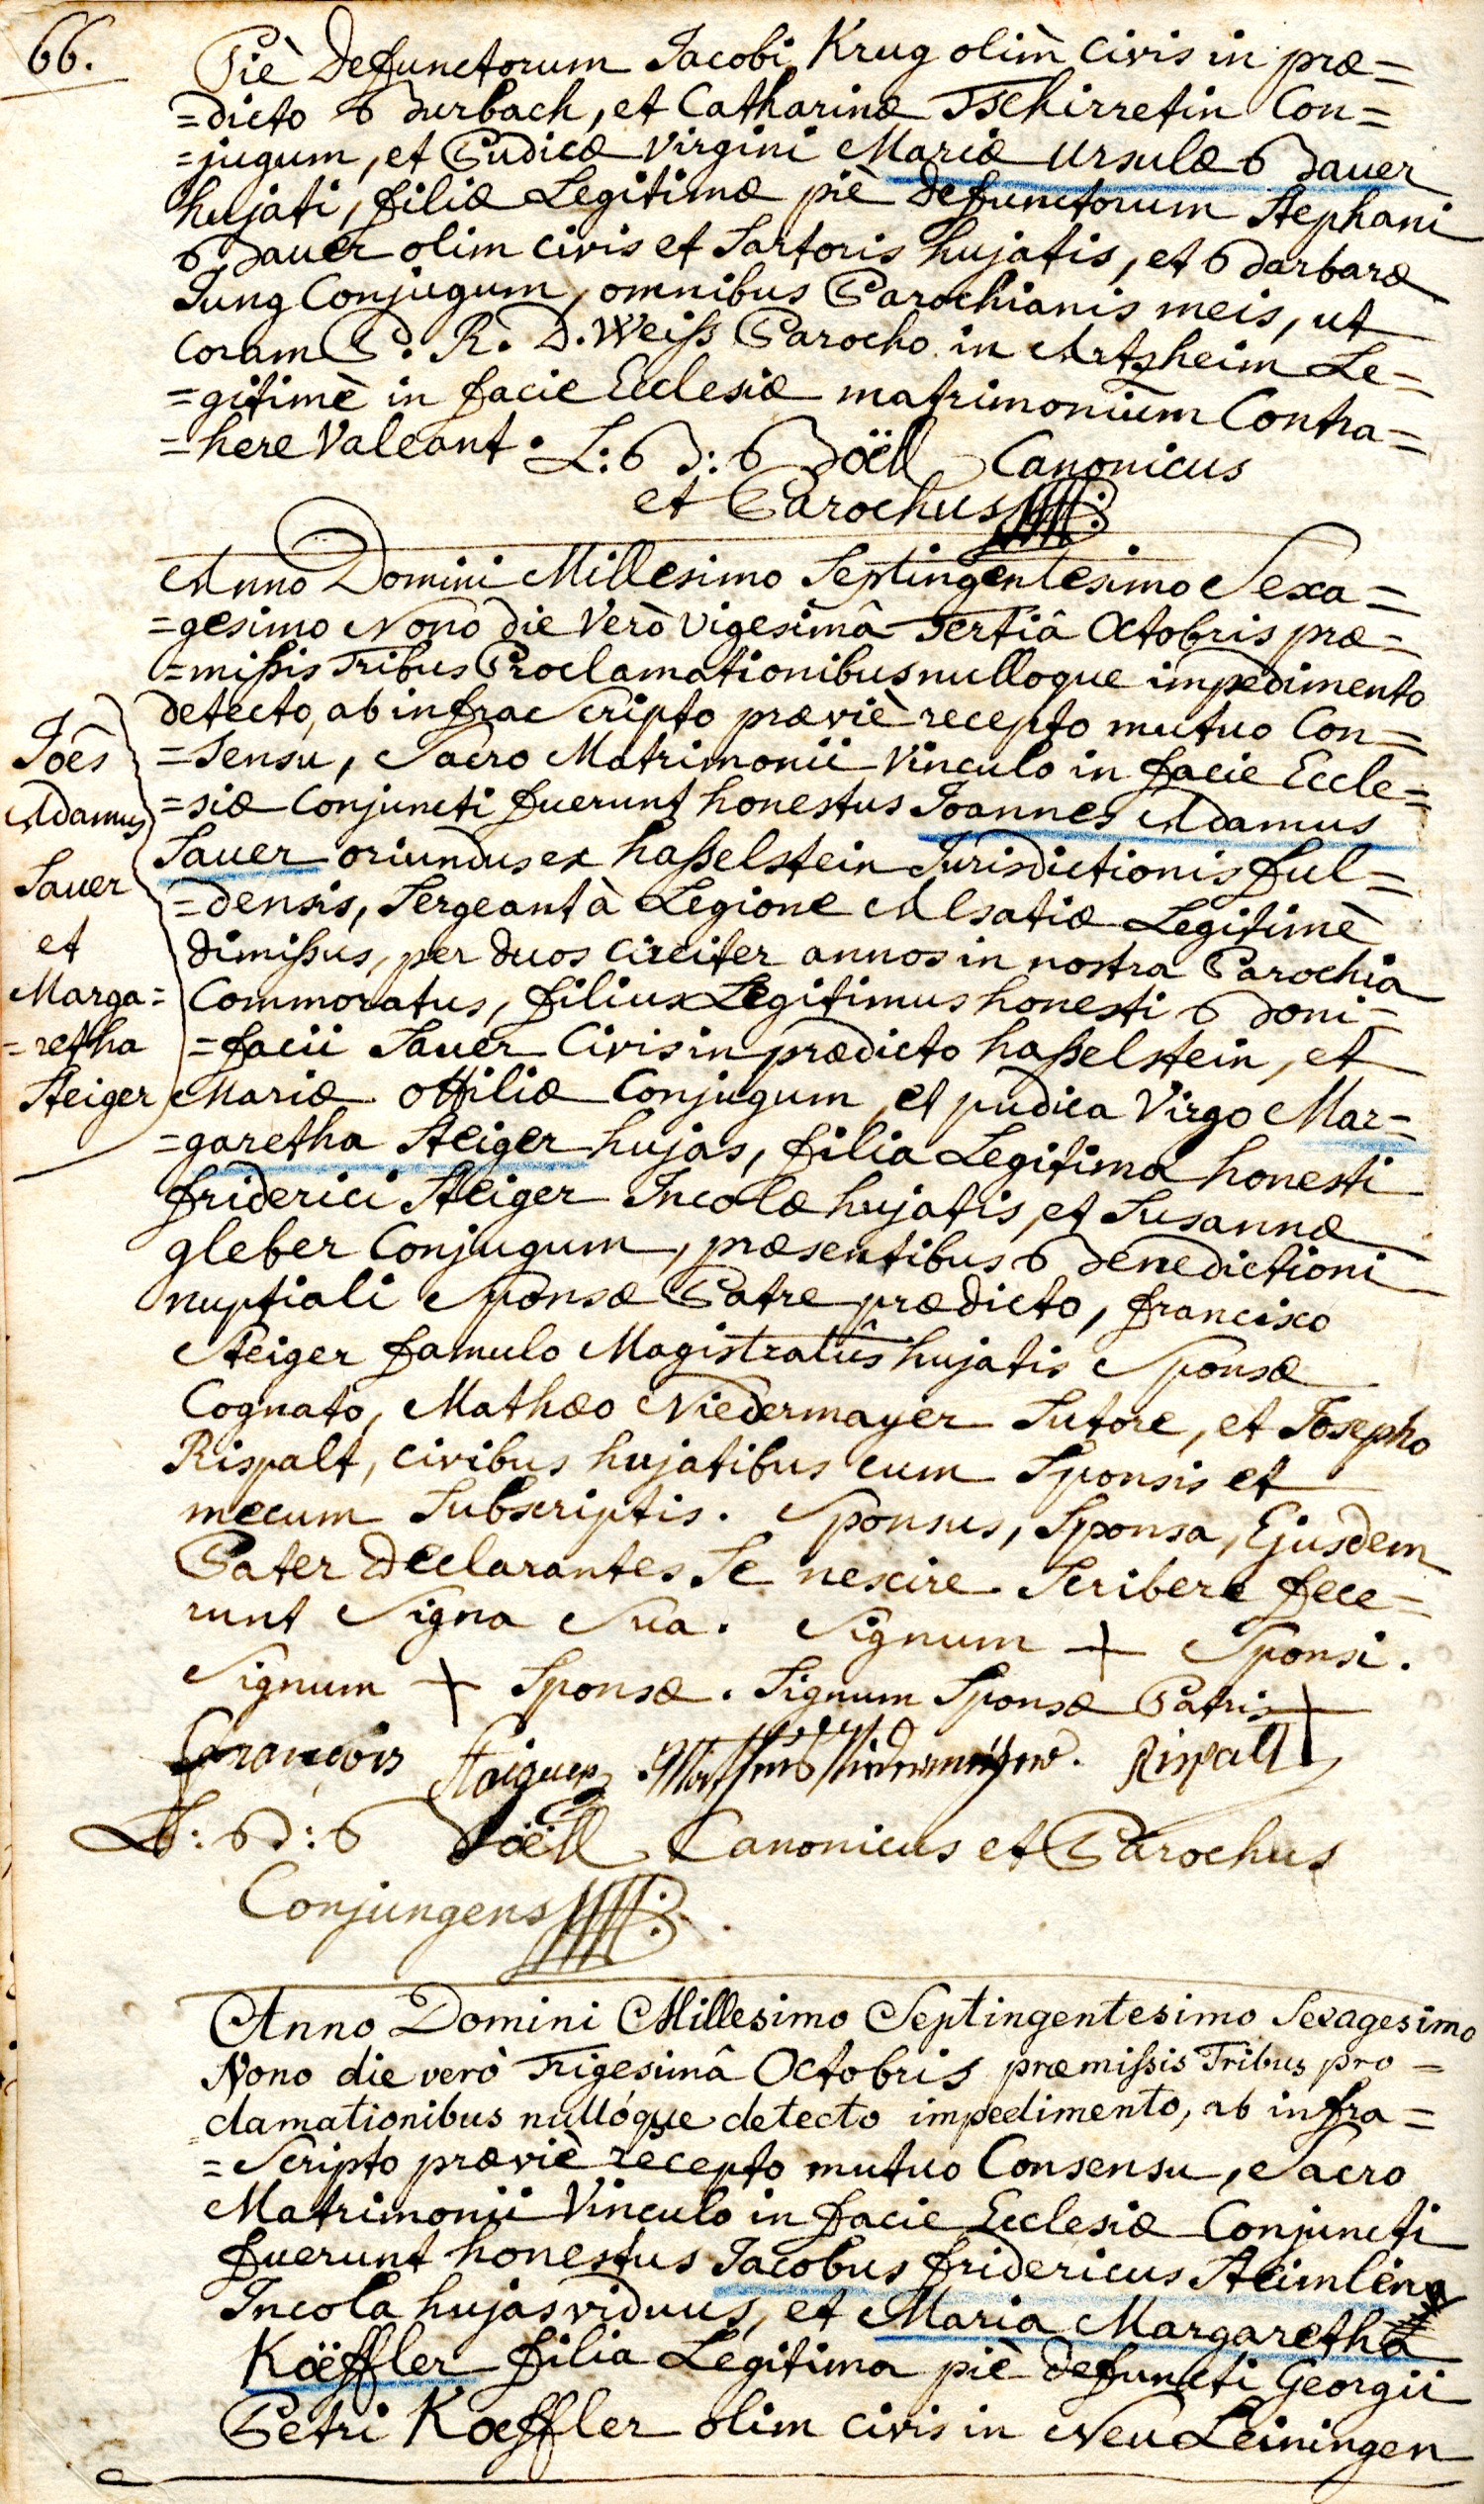 66.
Piè Defunctorum Jacobi Krug olim Civis in præ=
=dicto Burbach, et Catharinæ Tschirretin Con=
=jugum, et Pudicæ Virgini Mariæ Ursulæ Bauer
hujati, filiæ Legitimæ piè defunctorum Stephani
Bauer olim civis et Sartoris hujatis, et Barbaræ
Jung Conjugum, omnibus Parochianis meis, ut
coram P. R. D. Weiß Parocho in Artzheim Le=
=gitimè in facie Ecclesiæ matrimonium Contra=
=here Valeant. L: B: Boëll Canonicus
et Parochus
Anno Domini Millesimo Septingentesimo Sexa=
=gesimo Nono die Verò Vigesimâ Tertiâ Octobris præ=
=mißis Tribus Proclamationibus nulloque impedimento
detecto, ab infra Scripto præviè recepto mutuo Con=
=sensu, Sacro Matrimonii Vinculo in facie Eccle=
=siæ Conjuncti fuerunt honestus Joannes Adamus
Sauer oriundus ex haßelstein Jurisdictionis ful=
=densis, Sergeant à Legione Alsatiæ Legitimè
dimißus, per duos circiter annos in nostra Parochia
Commoratus, filius Legitimus honesti Boni=
=facii Sauer Civis in prædicto haßelstein, et
Mariæ ottiliæ Conjugum, et pudica Virgo Mar=
=garetha Steiger hujas, filia Legitima honesti
friderici Steiger Incolæ hujatis, et Susannæ
gleber Conjugum, præsentibus Benedictioni
nuptiali Sponsæ Patre prædicto, francisco
Steiger famulo Magistratûs hujatis Sponsæ
Cognato, Mathæo Niedermayer Sutore, et Josepho
Rispalt, civibus hujatibus cum Sponsis et
mecum Subscriptis. Sponsus, Sponsa, Ejusdem
Pater Declarantes Se nescire Scribere fece=
runt Signa Sua. Signum + Sponsi.
Signum + Sponsæ. Signum Sponsæ Patris +
Joês
Adamus
Sauer
et
Marga=
=retha
Steiger
François Staiguer. Matheus Niedermeÿer. Rispalt
L: B: Boëll Canonicus et Parochus
Conjungens
Anno Domini Millesimo Septingentesimo Sexagesimo
Nono die verò Trigesimâ Octobris præmißis Tribus pro=
=clamationibus nullóque detecto impedimento, ab infra=
=Scripto præviè recepto mutuo Consensu, Sacro
Matrimonii Vinculo in facie Ecclesiæ Conjuncti
fuerunt honestus Jacobus fridericus Steimlen
Incola hujas viduus, et Maria Margaretha
Köeffler filia Legitima piè defuncti Georgii
Petri Kœffler olim civis in Neu Leiningen